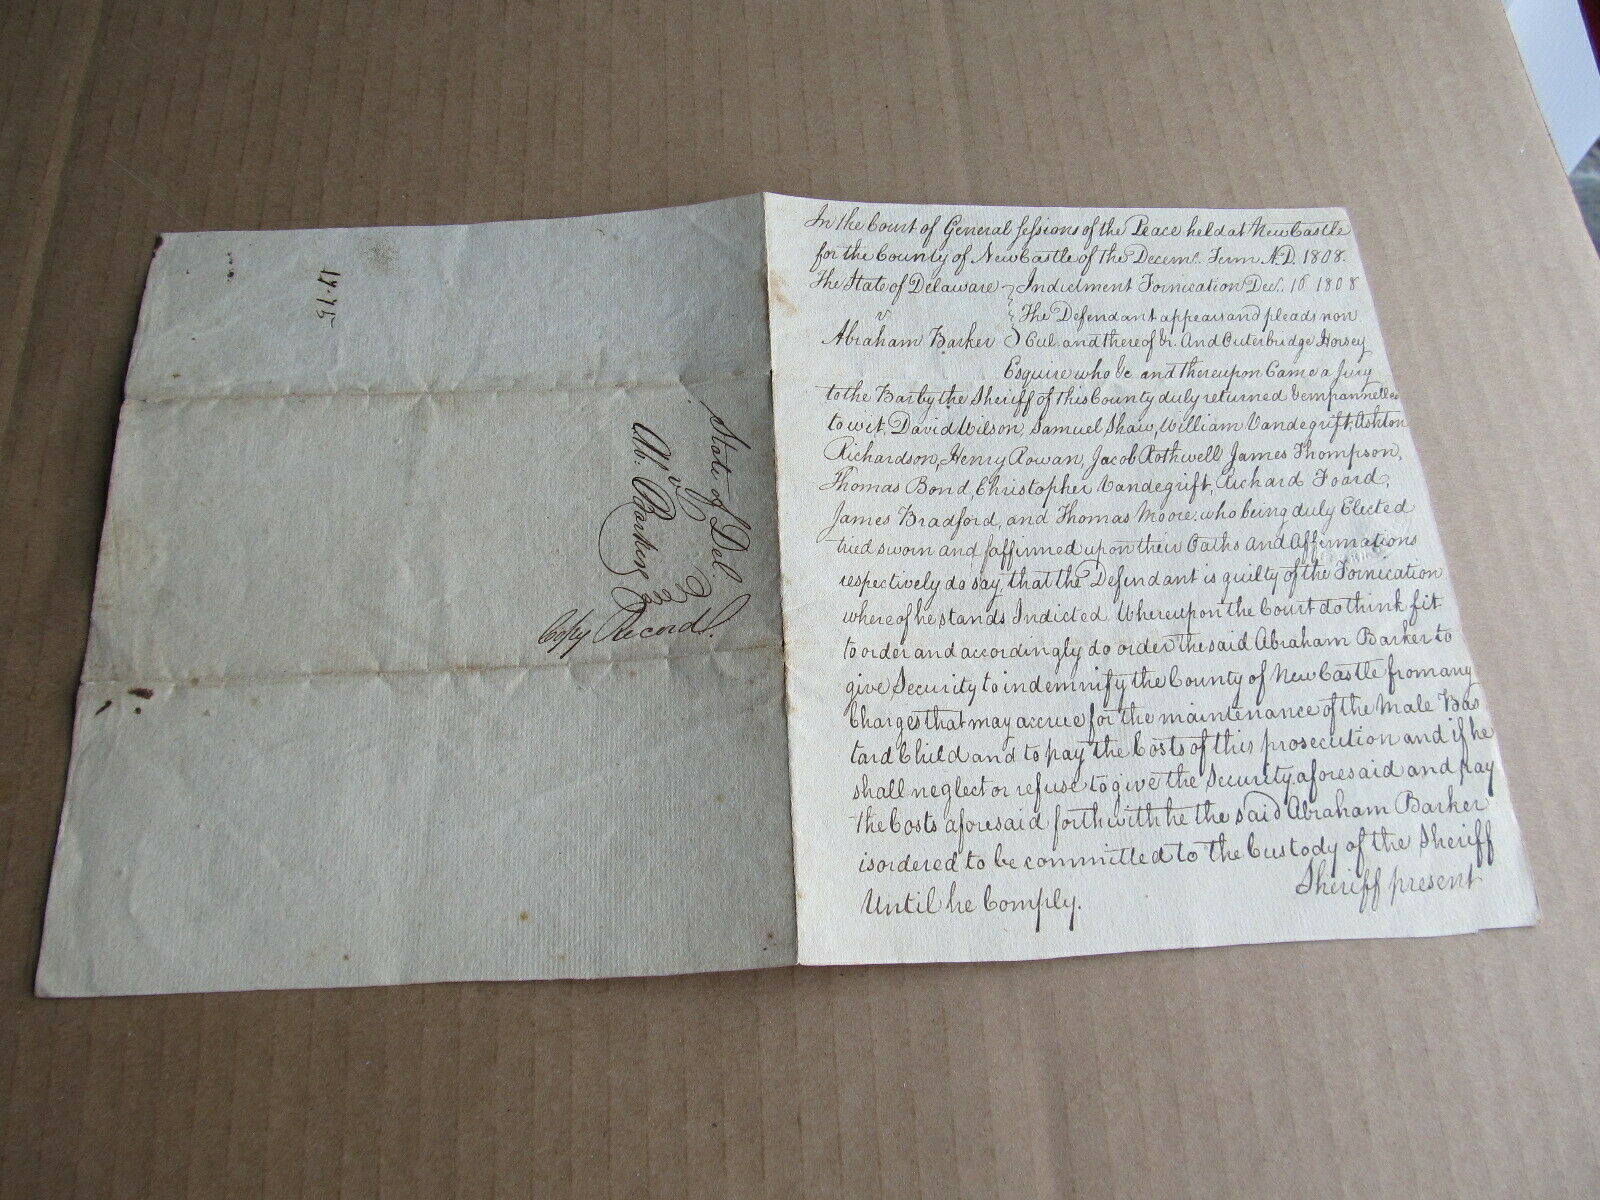 In the Court of General Sessions of the Peace held at New Castle
for the County of New Castle of the Decemr. Term A.D. 1808.
The State of Delaware } Indictment Fornication Decr. 16 1808
v The Defendant appears and pleads non
Abraham Barker Cul. and thereof &c. And Outerbridge Horsey
Esquire who &c and thereupon Came a Jury
to the Bar by the Sheriff of this County duly returned & empannelled
to wit, David Wilson, Samuel Shaw, William Vandegrift, Ashton
Richardson, Henry Rowan, Jacob Rothwell James Thompson,
Thomas Bond, Christopher Vandegrift, Richard Foard,
James Bradford, and Thomas Moore, who being duly Elected
tried sworn and affirmed upon their Oaths and Affirmations
respectively do say, that the Defendant is guilty of the Fornication
whereof he stands Indicted Whereupon the Court do think fit
to order and accordingly do order the said Abraham Barker to
give Security to indemnify the County of New Castle from any
Charges that may accrue for the maintenance of the Male Bas
tard Child and to pay the Costs of this prosecution and if he
shall neglect or refuse to give the Security aforesaid and pay
the Costs aforesaid forthwith he the said Abraham Barker
is ordered to be committed to the Custody of the Sheriff
Until he Comply.
Sheriff present
State of Del
v
Ab. Barker
Copy Record.